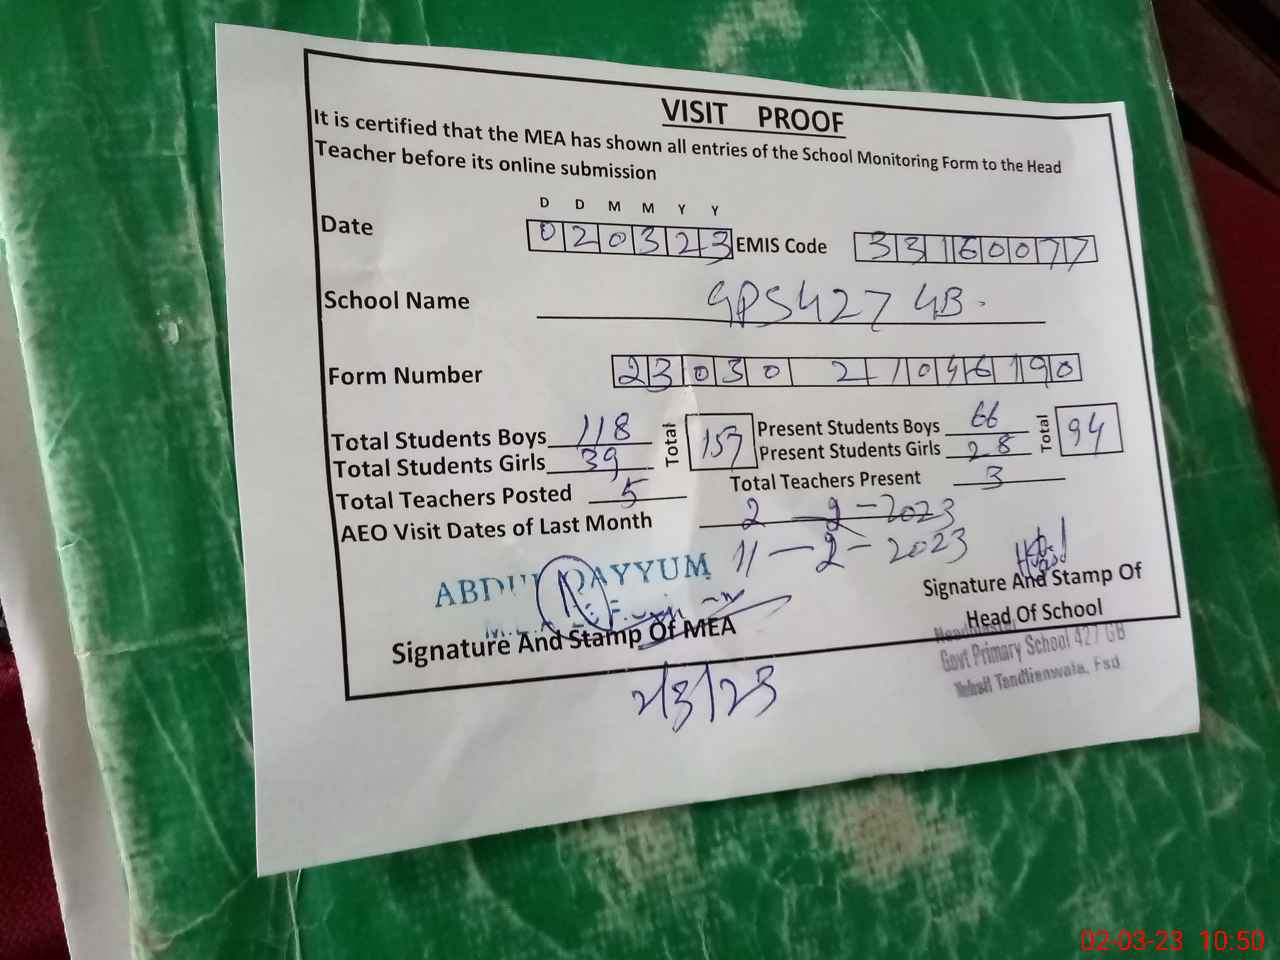 VISIT PROOF
It is certified that the MEA has shown all entries of the School Monitoring Form to the Head
Teacher before its online submission
D D M M Y Y
Date 020323 EMIS Code 33160077
School Name GPS 427 GB.
Form Number 23030 21046190
Total Students Boys 118 Total 157 Present Students Boys 66 Total 94
Total Students Girls 39 Present Students Girls 28
Total Teachers Posted 5 Total Teachers Present 3
AEO Visit Dates of Last Month 2-2-2023
11-2-2023
ABDUL QAYYUM
Signature And Stamp Of MEA
Signature And Stamp Of
Head Of School
Headmaster
Govt Primary School 427 GB
Tehsil Tandlianwala, Fsd
2/3/23
02-03-23 10:50